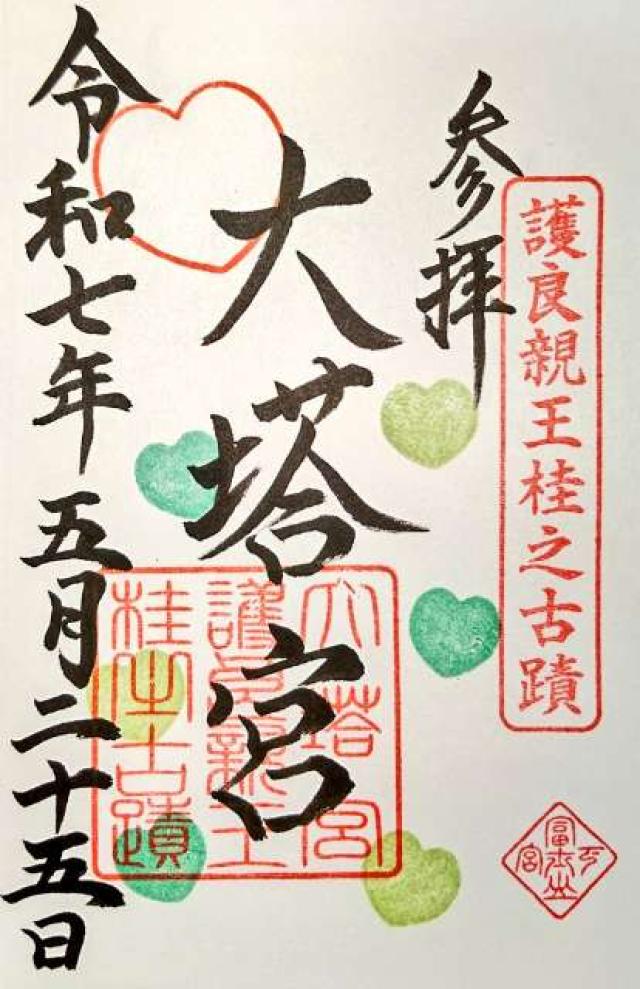 参拝
護良親王桂之古蹟
大塔宮
大塔宮
護良親王
桂之古蹟
令和七年五月二十五日